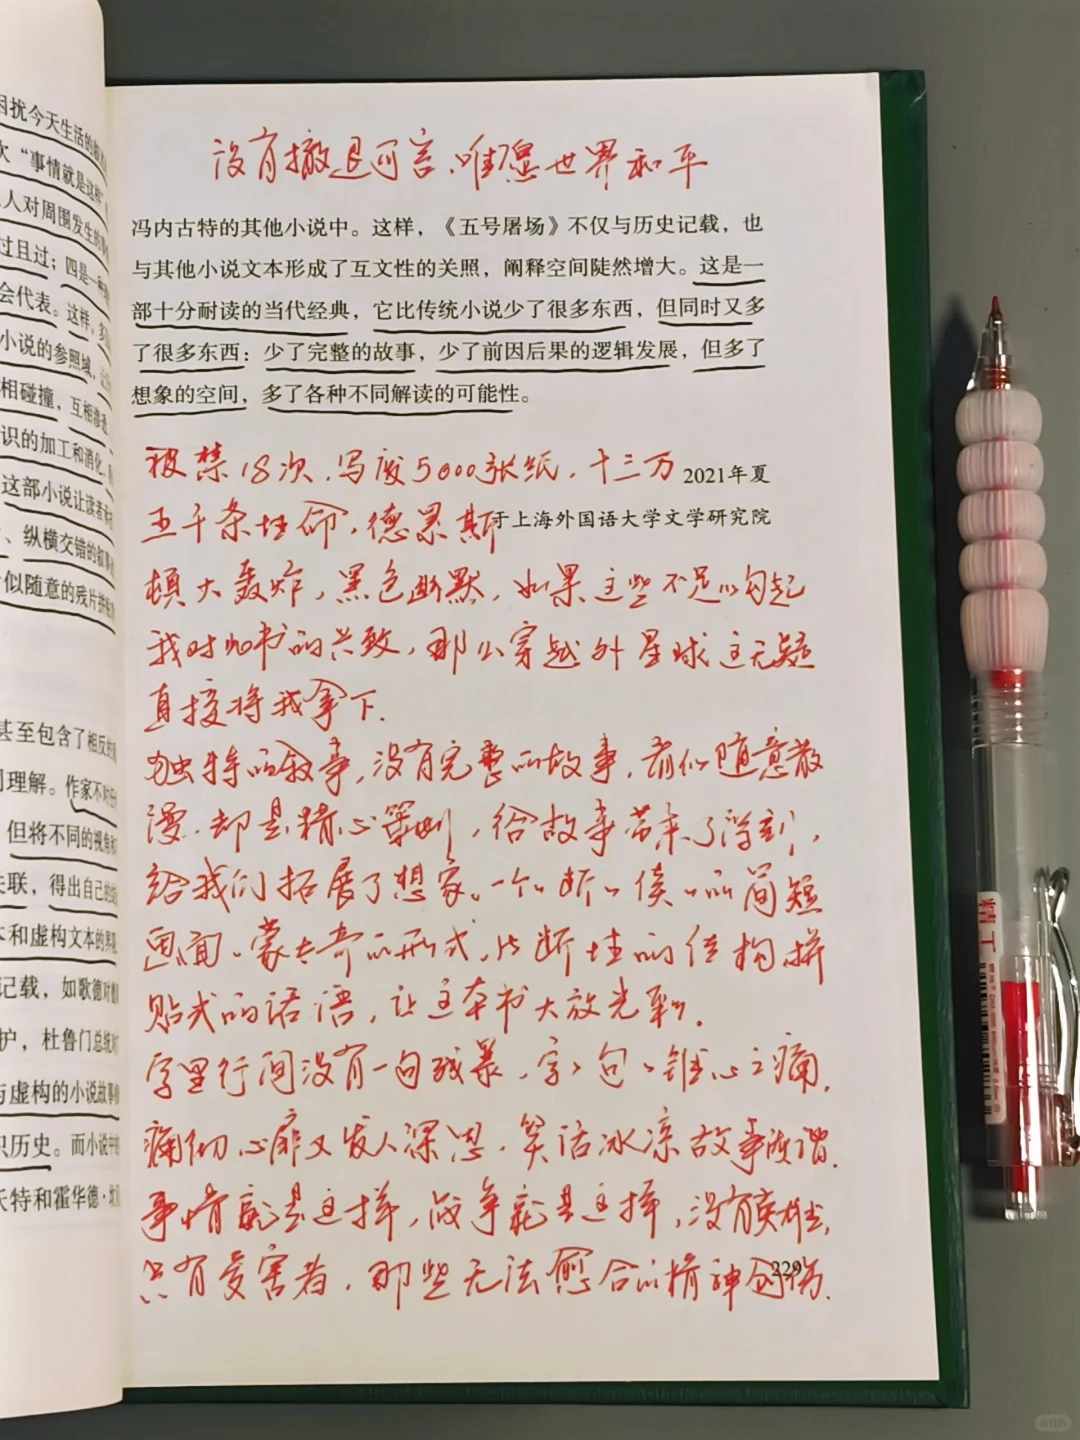 困扰今天生活的
次“事情就是这样”
人对周围发生的
过且过；四是一种
会代表。这样，
小说的参照域，
相碰撞，互相渗透
识的加工和消化，
这部小说让读者
、纵横交错的叙事
似随意的残片拼
甚至包含了相反的
同理解。作家不对
但将不同的视角
失联，得出自己的
本和虚构文本的界
记载，如歌德对
护，杜鲁门总统
与虚构的小说故事
识历史。而小说中
沃特和霍华德·
没有撤退可言，唯愿世界和平
冯内古特的其他小说中。这样，《五号屠场》不仅与历史记载，也
与其他小说文本形成了互文性的关照，阐释空间陡然增大。这是一
部十分耐读的当代经典，它比传统小说少了很多东西，但同时又多
了很多东西：少了完整的故事，少了前因后果的逻辑发展，但多了
想象的空间，多了各种不同解读的可能性。
被禁18次，写废5000张纸，十三万
2021年夏
五千条生命，德累斯
于上海外国语大学文学研究院
顿大轰炸，黑色幽默，如果这些不足以勾起
我对此书的兴致，那么穿越外星球这无疑
直接将我拿下．
独特的叙事，没有完整的故事，看似随意散
漫，却是精心策划，给故事带来了深刻，
给我们拓展了想象。一个个断断续续的简短
画面、蒙太奇的形式，以断层的结构拼
贴式的话语，让这本书大放光彩．
字里行间没有一句残暴，字字句句锥心之痛，
痛彻心扉又发人深思，笑话冰凉故事诙谐．
事情就是这样，战争就是这样，没有英雄，
只有受害者，那些无法愈合的精神创伤．
229
精丁
小红书